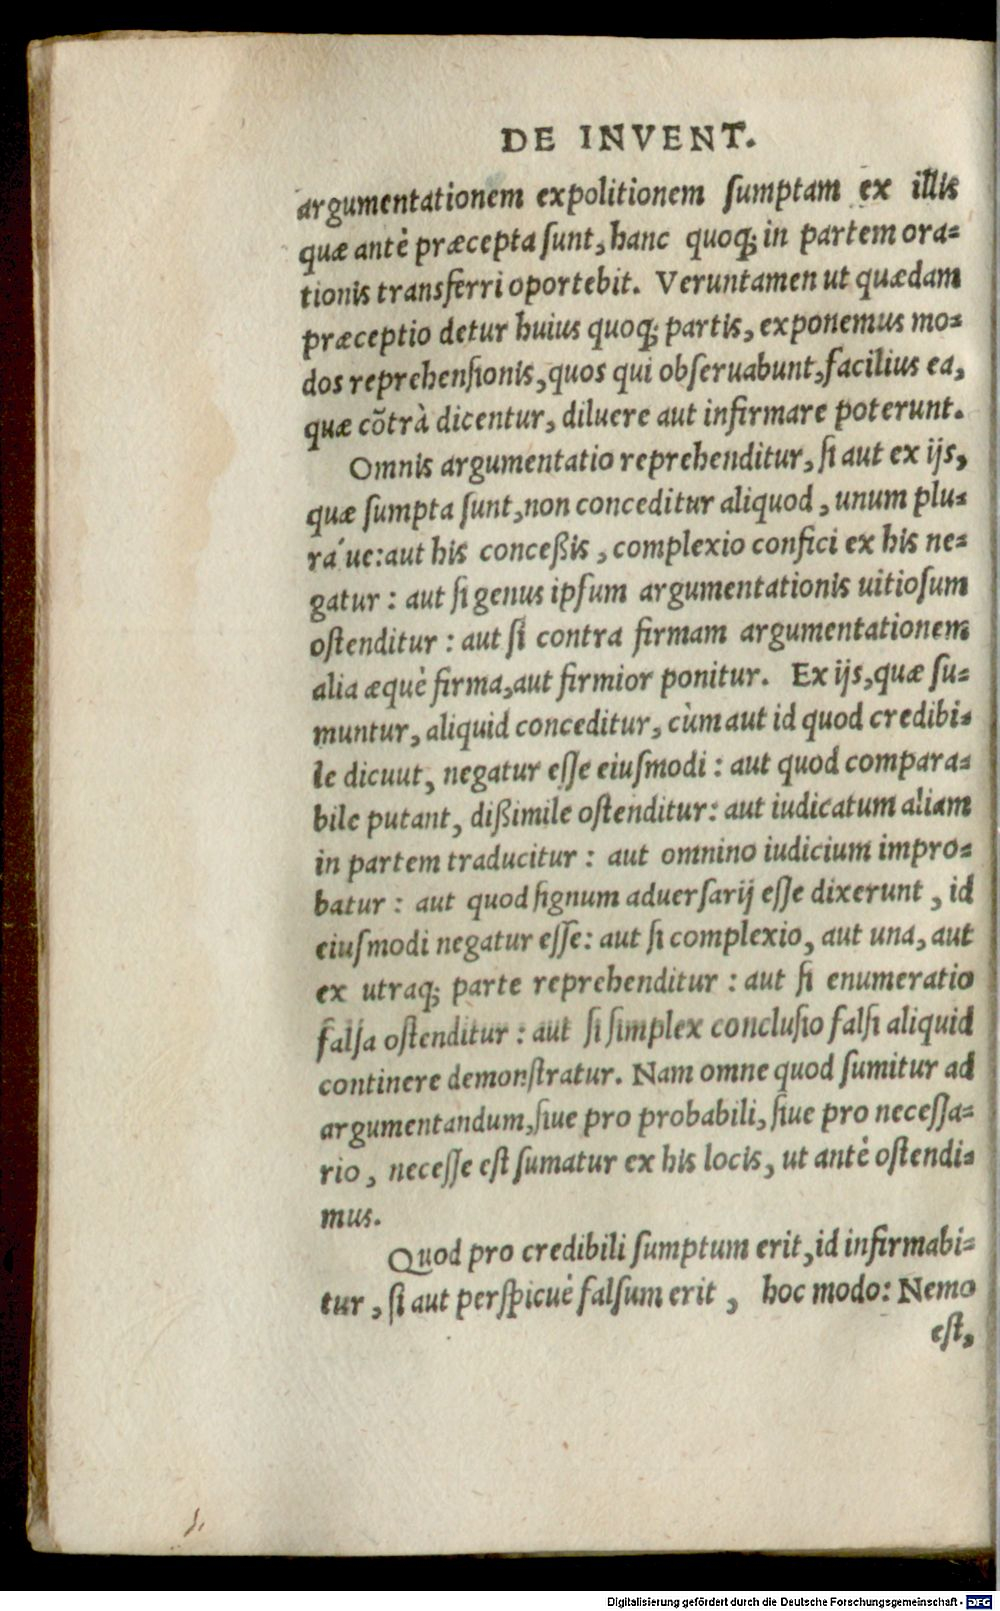 DE INVENT.
argumentationem expolitionem ſumptam ex illis
quæ antè præcepta ſunt, hanc quoq; in partem ora=
tionis transferri oportebit. Veruntamen ut quædam
præceptio detur huius quoq; partis, exponemus mo=
dos reprehenſionis, quos qui obſeruabunt, facilius ea,
quæ cōtrà dicentur, diluere aut infirmare poterunt.
Omnis argumentatio reprehenditur, ſi aut ex ijs,
quæ ſumpta ſunt, non conceditur aliquod, unum plu=
ra´ue: aut his conceßis, complexio confici ex his ne=
gatur: aut ſi genus ipſum argumentationis uitioſum
oſtenditur: aut ſi contra firmam argumentationem
alia æquè firma, aut firmior ponitur. Ex ijs, quæ ſu=
muntur, aliquid conceditur, cùm aut id quod credibi=
le dicuut, negatur eſſe eiuſmodi: aut quod compara=
bile putant, dißimile oſtenditur: aut iudicatum aliam
in partem traducitur: aut omnino iudicium impro=
batur: aut quod ſignum aduerſarij eſſe dixerunt, id
eiuſmodi negatur eſſe: aut ſi complexio, aut una, aut
ex utraq; parte reprehenditur: aut ſi enumeratio
falſa oſtenditur: aut ſi ſimplex concluſio falſi aliquid
continere demonſtratur. Nam omne quod ſumitur ad
argumentandum, ſiue pro probabili, ſiue pro neceſſa=
rio, neceſſe eſt ſumatur ex his locis, ut antè oſtendi=
mus.
Quod pro credibili ſumptum erit, id infirmabi=
tur, ſi aut perſpicuè falſum erit, hoc modo: Nemo
eſt,
Digitalisierung gefördert durch die Deutsche Forschungsgemeinschaft - DFG